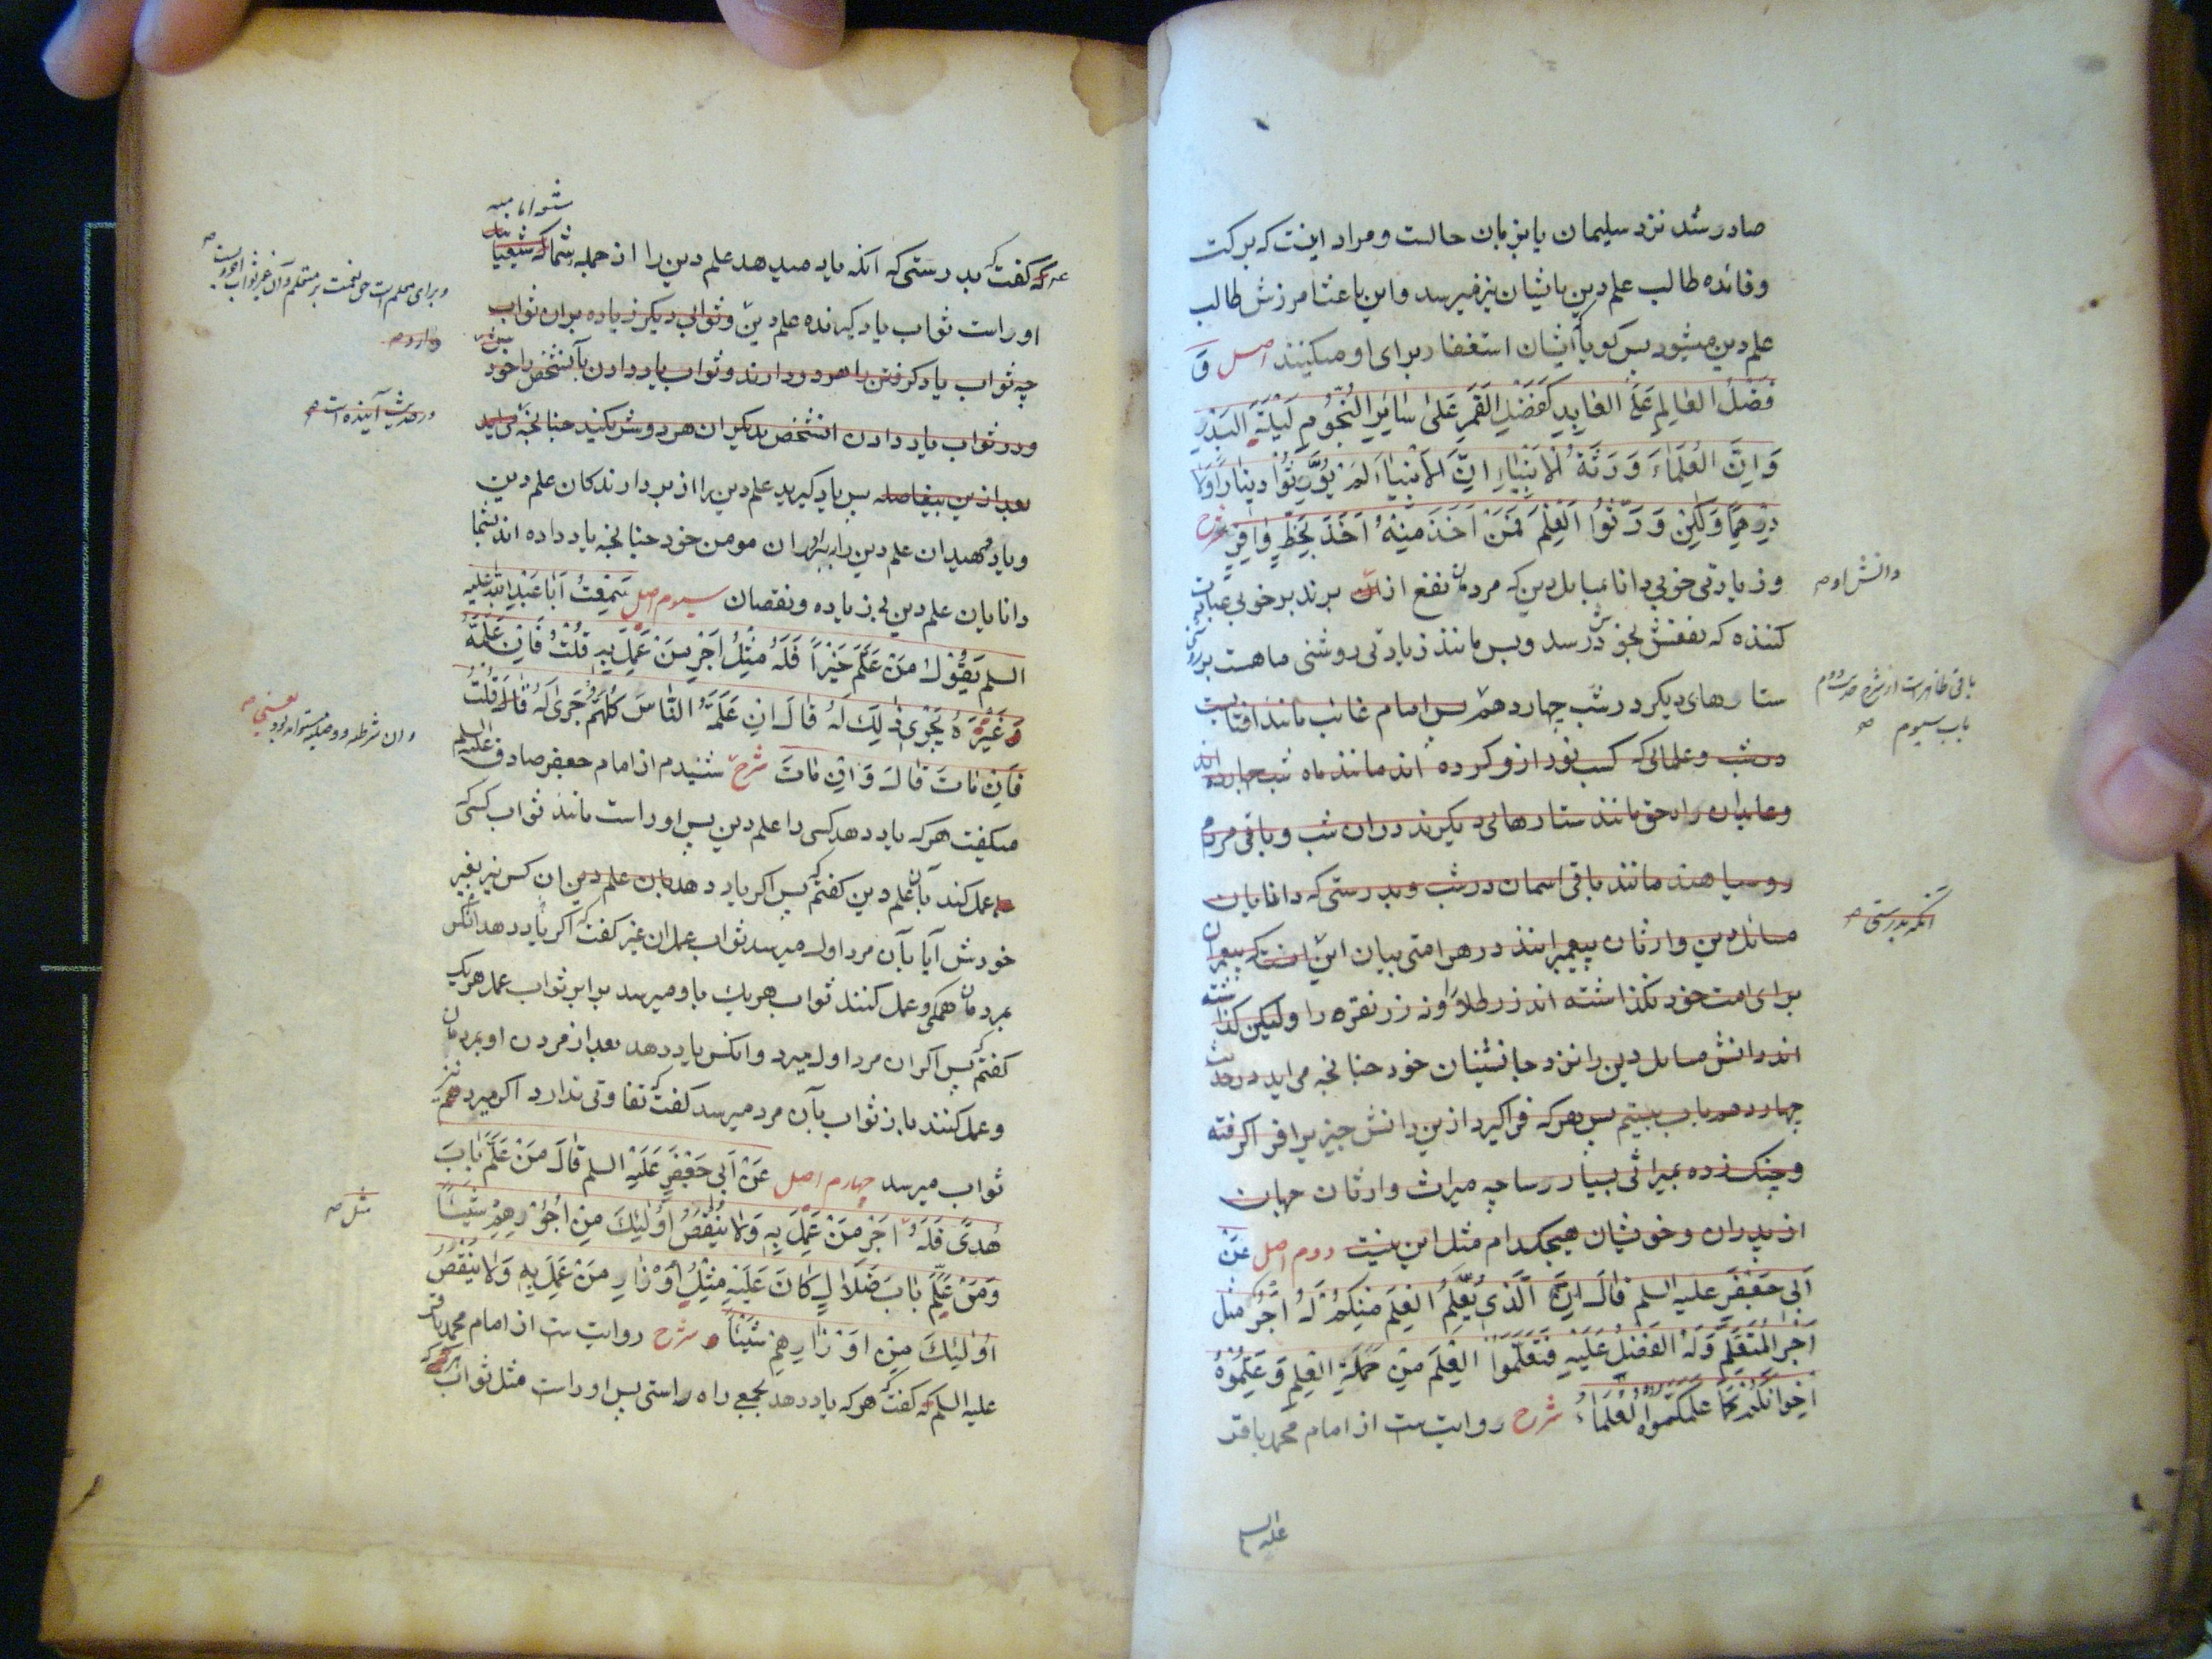 صادر شد نزد سلیمان یا بزبان حالست و مراد اینست که برکت
و فائده طالب علم دین باشیان نیز میرسد و این باعث امرزش طالب
علم دین میشود پس کویا ایشان استغفار برای او میکنند اصل وَ
فَضْلُ العَالِمِ عَلَى العَابِدِ كَفَضْلِ القَمَرِ عَلىٰ سَائِرِ النُّجُومِ لَيْلَةَ البَدْرِ
وَ اِنَّ العُلَمَاءَ وَرَثَةُ الاَنْبِيَاءِ اِنَّ الاَنْبِيَاءَ لَمْ يُوَرِّثُوْا دِيْنَارًا وَلَا
دِرْهَمًا وَلٰكِنْ وَرَّثُوْا العِلْمَ فَمَنْ اَخَذَ مِنْهُ اَخَذَ بِحَظٍّ وَافِرٍ شرح
و زیادتی خوبی دانا بمسایل دین که مردمان نفع از برند بر خوبی عبادت
کننده که نفعش بخودش رسد و بس مانند زیادتی روشنی ماهست بر
ستارهای دیکر در شب چهاردهم پس امام غائب مانند افتابست
در شب و علمائی که کسب نور ازو کرده اند مانند ماه شب چهارده اند
و عابدان راه حق مانند ستارهای دیکرند در ان شب و باقی مردم
روسیاهند مانند باقی اسمان در شب و بدرستی که دانایان
مسائل دین وارثان پیغمبرانند در هر امتی بیان این انست که پیغمبران
برای امت خود نکذاشته اند زر طلا و نه زر نقره را و لیکن کذاشته
اند دانش مسایل دین را نزد جانشینان خود چنانچه می اید در حدیث
چهاردهم باب بیستم پس هر که فراکیرد ازین دانش چیزیرا فراکرفته
و چنک زده بمیراثی بسیار رسا چه میراث وارثان جهان
از پدران و خویشان هیچکدام مثل این نیست دوم اصل عَنْ
اَبِي جَعْفَرٍ عليه السلم قَالَ اِنَّ الَّذِي يُعَلِّمُ العِلْمَ مِنْكُمْ لَهُ اَجْرٌ مِثْلُ
اَجْرِ المُتَعَلِّمِ وَلَهُ الفَضْلُ عَلَيْهِ فَتَعَلَّمُوا العِلْمَ مِنْ حَمَلَةِ العِلْمِ وَ عَلِّمُوْهُ
اِخْوَانَكُمْ كَمَا عَلَّمَكُمُوْهُ العُلَمَاءُ شرح روایتست از امام محمد باقر
علیه السلم
دانش او
باقی ظاهرست از شرح حدیث دوم
باب سیوم
انکه بدرستی
که کفت که بدرستی که انکه یاد میدهد علم دین را از جمله شما که شیعیان
او راست ثواب یاد کیرنده علم دین و ثوابی دیکر زیاده بران ثواب
چه ثواب یاد کرفتن را هر دو دارند و ثواب یاد دادن بآنشخص را خود
و در ثواب یاد دادن انشخص بدیکران هر دو شریکند چنانچه می اید
بعد ازین بیفاصله پس یاد کیرید علم دین را از بردارندکان علم دین
و یاد دهید ان علم دین را برادران مومن خود چنانچه یاد داده اند بشما
دانایان علم دین بی زیاده و نقصان سیوم اصل سَمِعْتُ اَبَا عَبْدِ اللّٰهِ عليه
السلم يَقُوْلُ مَنْ عَلَّمَ خَيْرًا فَلَهُ مِثْلُ اَجْرِ مَنْ عَمِلَ بِهِ قُلْتُ فَاِنْ عَلَّمَهُ
غَيْرَهُ يَجْرِيْ ذٰلِكَ لَهُ قَالَ اِنْ عَلَّمَهُ النَّاسَ كُلَّهُمْ جَرىٰ لَهُ قُلْتُ
فَاِنْ مَاتَ قَالَ وَ اِنْ مَاتَ شرح شنیدم از امام جعفر صادق علیه السلم
میکفت هر که یاد دهد کسی را علم دین پس او راست مانند ثواب کسی که
عمل کند بآن علم دین کفتم که پس اکر یاد دهد بان علم دین ان کس نیز بغیر
خودش آیا بآن مرد اول میرسد ثواب عمل ان غیر کفت که اکر یاد دهد انکس
بمردمان همکی و عمل کنند ثواب هر یک باو میرسد برابر ثواب عمل هر یک
کفتم که پس اکر ان مرد اول میرد و انکس یاد دهد بعد از مردن او بمردمان
و عمل کنند باز ثواب بآن مرد میرسد کفت که تفاوتی ندارد اکر میرد نیز
ثواب میرسد چهارم اصل عَنْ اَبِي جَعْفَرٍ عَلَيْهِ السلم قَالَ مَنْ عَلَّمَ بَابَ
هُدًى فَلَهُ اَجْرُ مَنْ عَمِلَ بِهِ وَلَا يُنْقَصُ اُولٰئِكَ مِنْ اُجُوْرِهِمْ شَيْئًا
وَمَنْ عَلَّمَ بَابَ ضَلَالٍ كَانَ عَلَيْهِ مِثْلُ اَوْزَارِ مَنْ عَمِلَ بِهِ وَلَا يُنْقَصُ
اُولٰئِكَ مِنْ اَوْزَارِهِمْ شَيْئًا شرح روایتست از امام محمد باقر
علیه السلم که کفت که هر که یاد دهد بجمعی راه راستی پس او راست مثل ثواب
در حدیث آینده است
یعنی
مثل